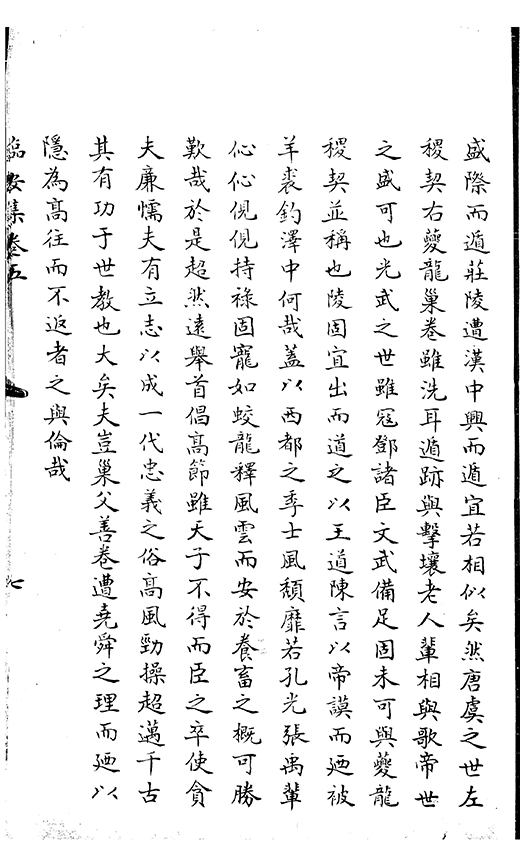 盛際而遁莊陵遭漢中興而遁宜若相似矣然唐虞之世左
稷契右夔龍巢卷雖洗耳遁跡與擊壤老人輩相與歌帝世
之盛可也光武之世雖寇鄧諸臣文武備足固未可與夔龍
稷契並稱也陵固宜出而道之以王道陳言以帝謨而廼被
羊裘釣澤中何哉蓋以西都之季士風頹靡若孔光張禹輩
伈伈俔俔持祿固寵如蛟龍釋風雲而安於養畜之概可勝
歎哉於是超然遠舉首倡高節雖天子不得而臣之卒使貪
夫廉懦夫有立志以成一代忠義之俗高風勁操超邁千古
其有功于世教也大矣夫豈巢父善卷遭堯舜之理而廼以
隱為高往而不返者之與倫哉
臨安集卷五
七